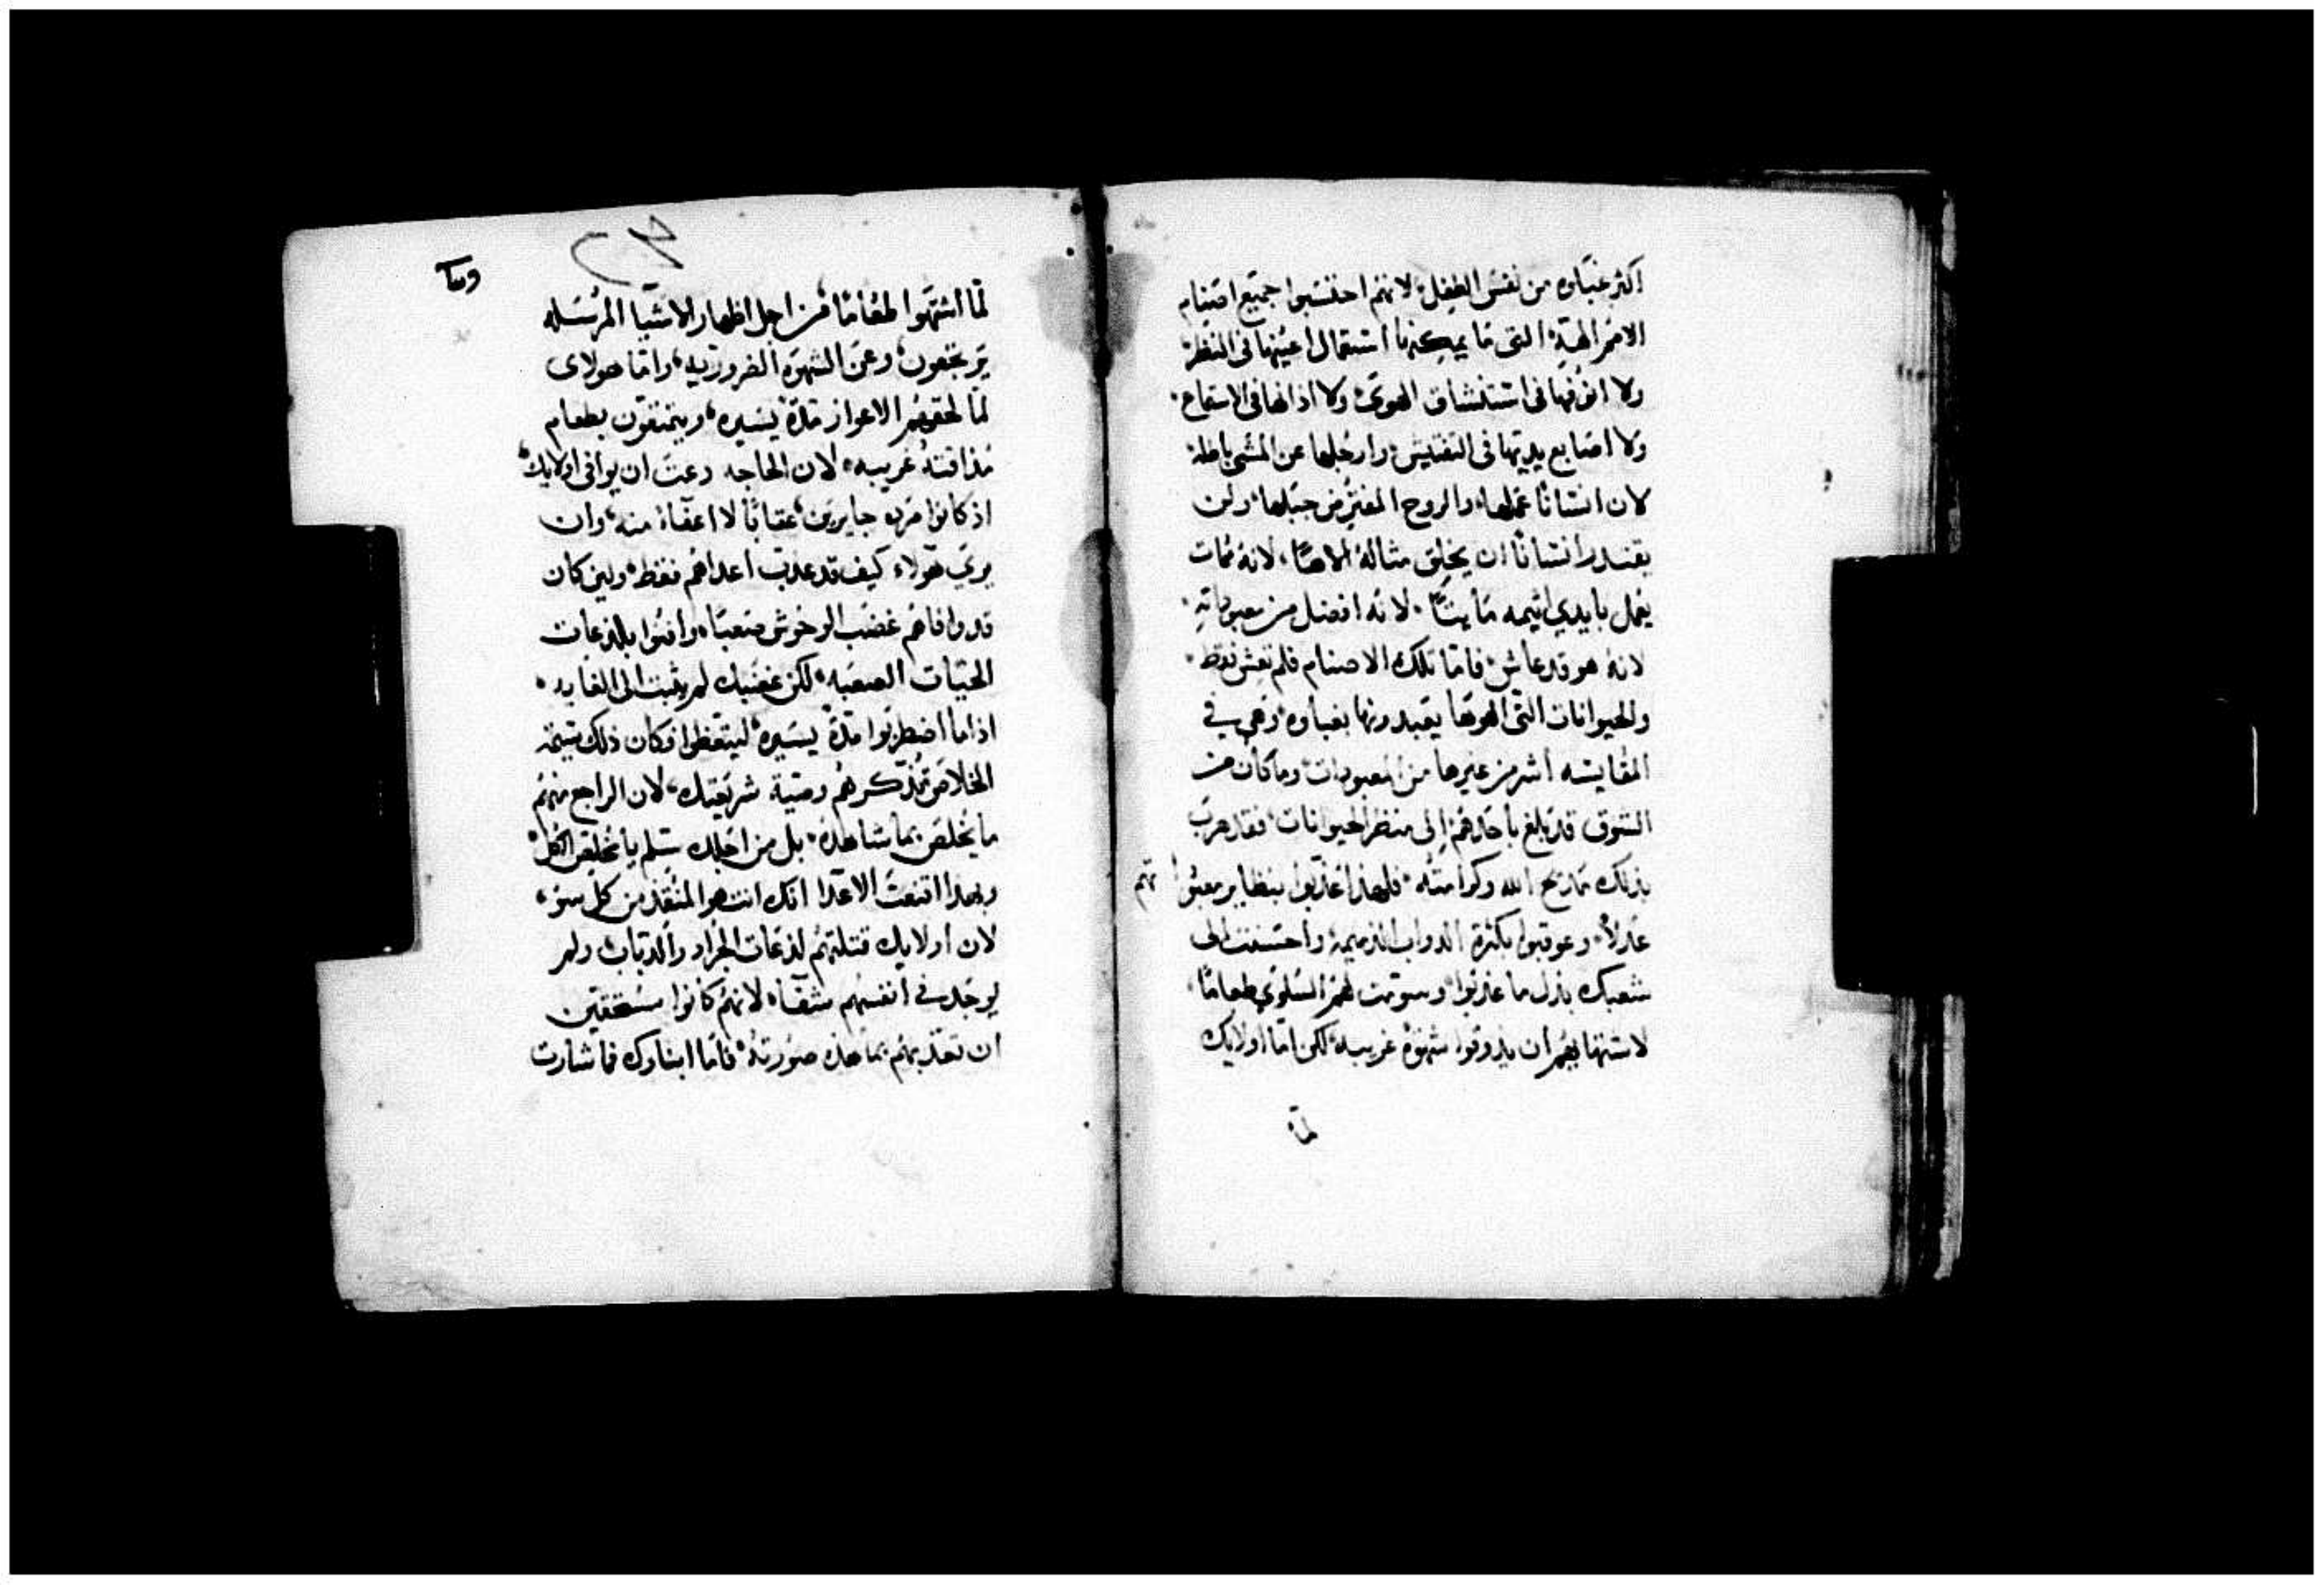 اكثر غباوه من نفس الطفل لانهم احتسبوا جميع اصنام
الامم الهة التى ما يمكنها استعمال اعينها فى النظر
ولا انوفها فى استنشاق الهوى ولا اذانها فى الاستماع
ولا اصابع يديها فى التفتيش وارجلها عن المشى باطله
لان انسانًا عملها والروح المقترض جبلها ولن
يقتدر انسانًا ان يخلق مثاله الاهًا لانه مات
يعمل بايدي اثيمه مايتًا لانه افضل من معبوداته
لانه هو قد عاش فاما تلك الاصنام فلم تعش فقط
والحيوانات التى المقوتها يعبدونها بغباوه وهي في
المقايسه اشر من غيرها من المعبودات وما كان من
الشوق قد بلغ باحدهم الى منظر الحيوانات فقد هرب
بذلك مديح الله وكرامته فلهذا عذبوا بنظاير معبودا تهم
عدلاً وعوقبوا بكثرة الدواب الذميمه واحسنت الى
شعبك بدل ما عذبوا وسومت لهم السلوي طعامًا
لاشتهايهم ان يذوقوا شهوة غريبه لكن اما اولايك
لما
وسا
لما اشتهوا طعامًا من اجل اظهار الاشيا المرسله
يرتجعون وعن الشهوه الضروريه واما هولاى
لما لحقهم الاعواز مدة يسيره ويتمتعون بطعام
مذاقته غريبه لان الحاجه دعت ان يوافى اولايك
اذ كانوا مرده جايرين عقابًا لا اعفاة منه وان
يري هولاء كيف قد عذب اعداهم فقط ولين كان
قد وافاهم غضب الوحوش صعبًا وافنوا بلدغات
الحيات الصعبه لكن غضبك لم يثبت الى الغايه
اذا ما اضطربوا مدة يسيره ليتعظوا فكان ذلك
الخلاص تذكرهم وصية شريعتك لان الراجع منهم
ما يخلص بما شاهده بل من اجلك سلم يا مخلص الكل
وبهذا اقنعت الاعدا انك انت هو المنقذ من كل سو
لان اولايك قتلتهم لدغات الجراد والدباب ولم
يوجد في انفسهم شفاء لانهم كانوا مستحقين
ان تعذبهم بما هذه صورته فاما ابناوك فما شارت